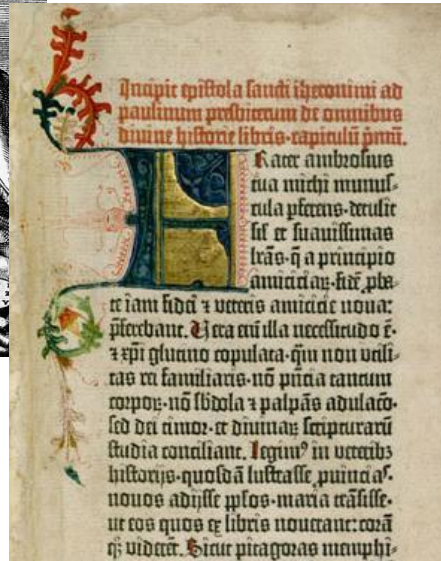 Incipit epistola sancti iheronimi ad
paulinum presbiterum de omnibus
divine historie libris·capitulū pmū.
Frater ambrosius
tua michi munus-
cula pferens·detulit
sil' et suavissimas
lrās·q̄ a principio
amiciciaꝝ·fidē pba-
te iam fidei ⁊ veteris amicicie nova:
pferebant. Vera eni illa necessitudo ē·
⁊ xpi glutino copulata·qm̄ non utili-
tas rei familiaris·nō pn̄cia tantum
corpoꝝ·nō sbdola ⁊ palpās adulacō·
sed dei timor·et divinaꝝ scripturarū
studia conciliant. Legimꝰ in veteribꝫ
historijs·quosdā lustrasse puincias·
novos adijsse pplos·maria trāsisse·
ut eos quos ex libris noverant: corā
qꝫ viderēt. Sicut pitagoras memphi-